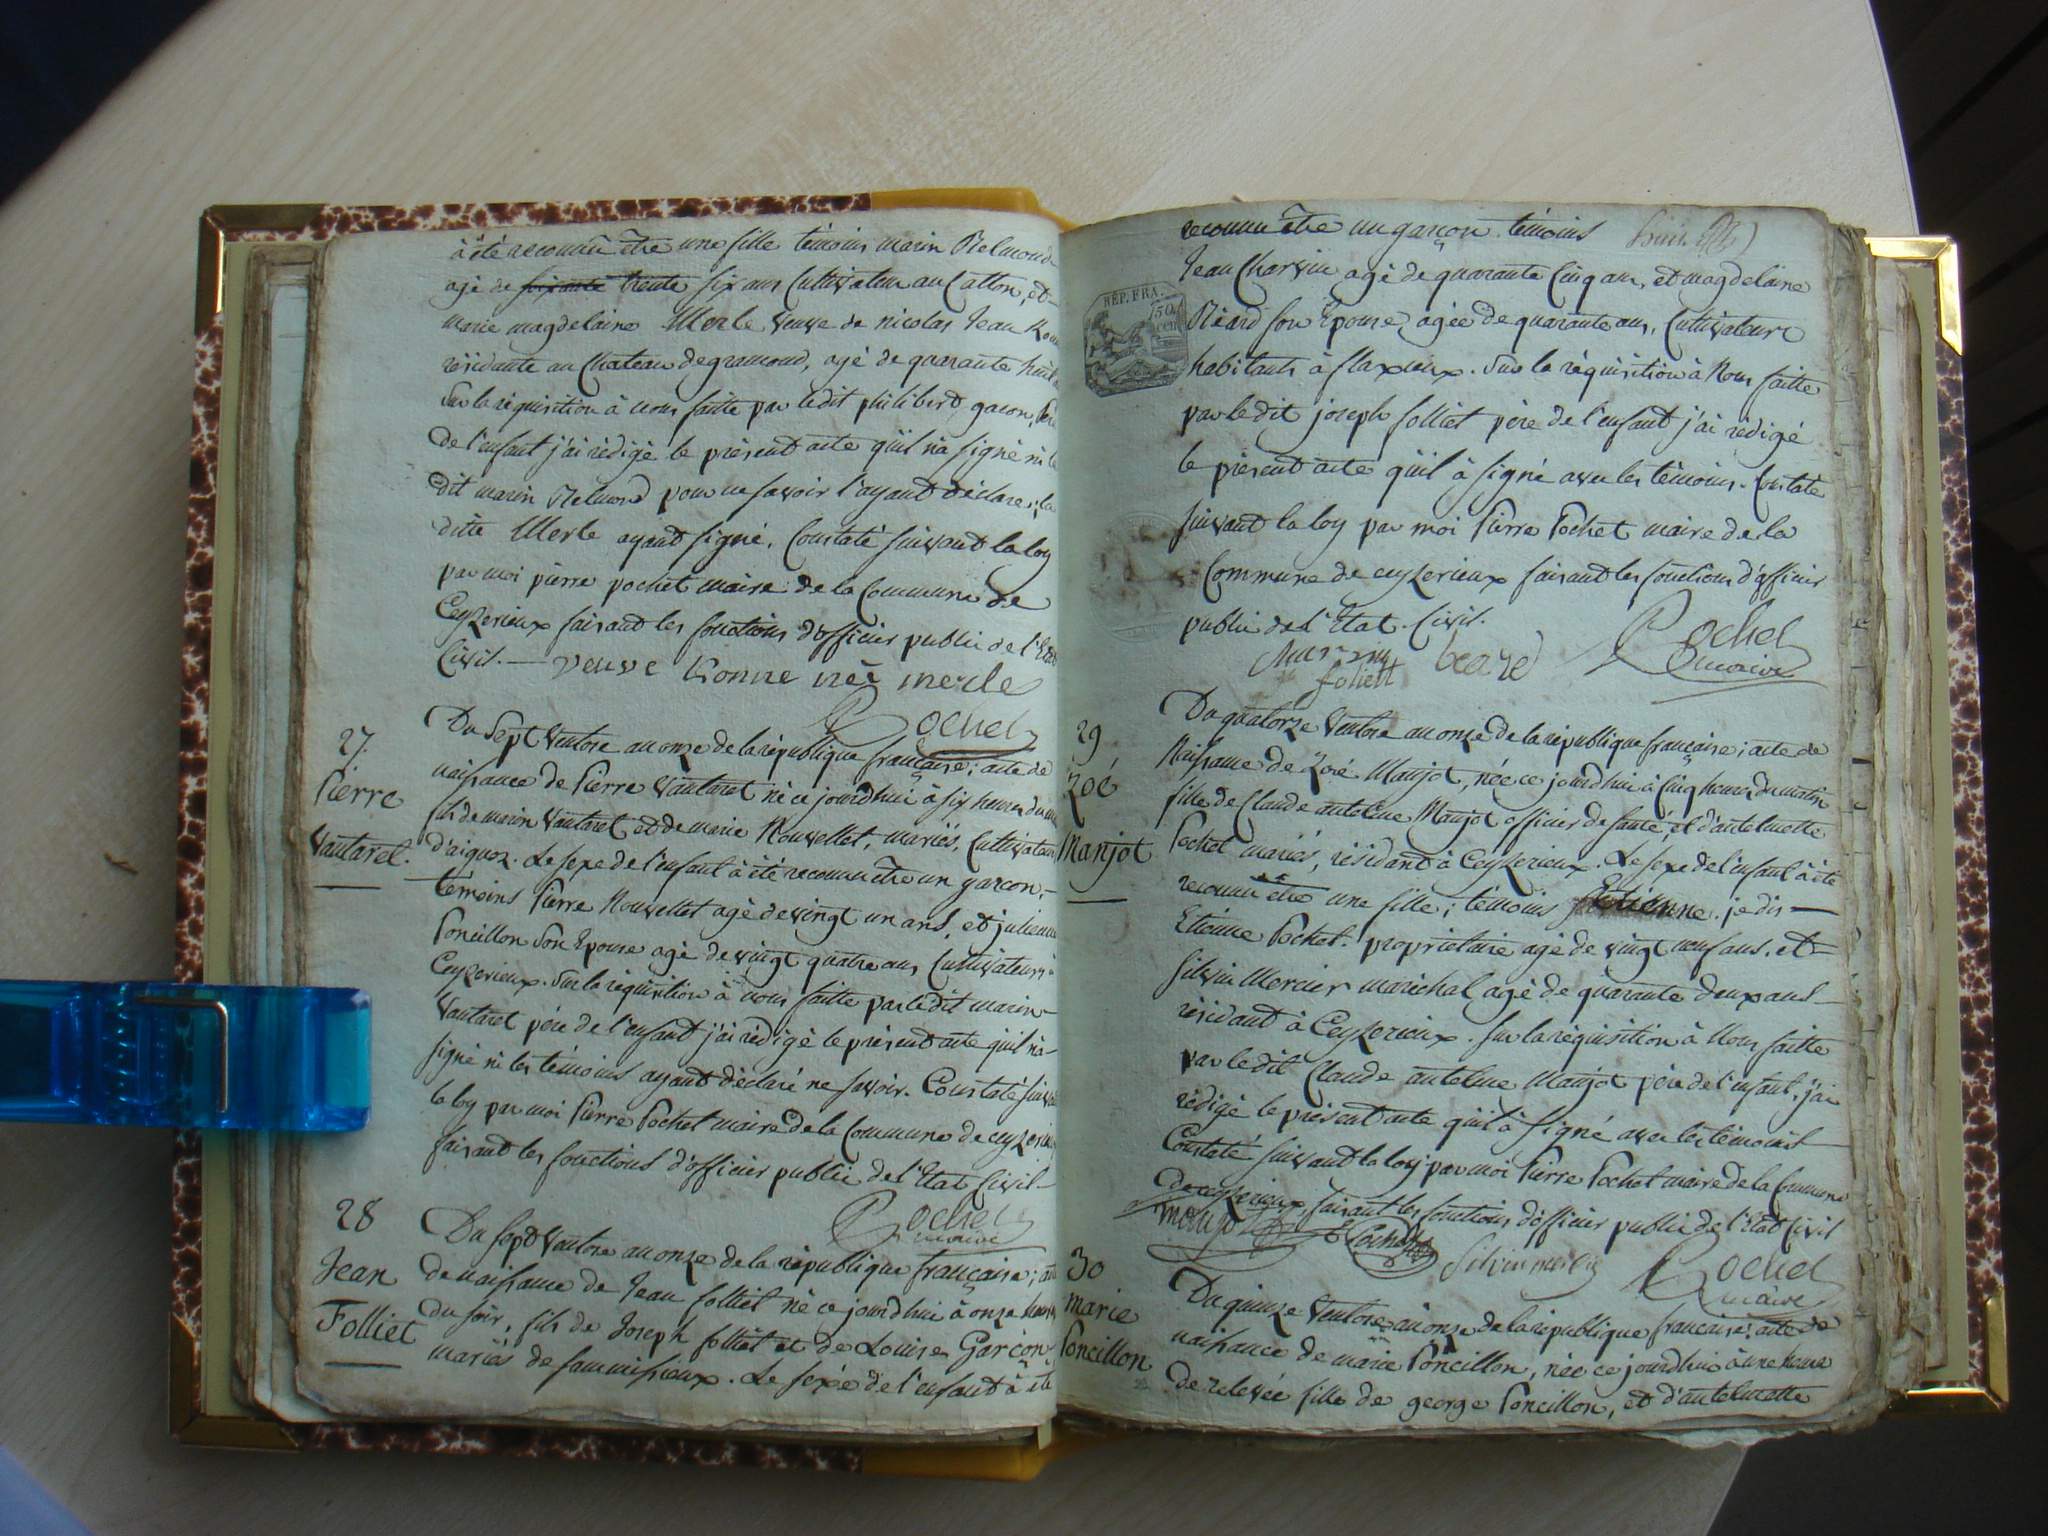 à été reconnu être une fille témoins marin
agé de soixante trente six ans Cultivateur au Catton, et
marie magdelaine Merle veuve de nicolas Jean
résidante au Chateau degramond, agé de quarante huit
Sur la réquisition à nous faitte par ledit philibert gacon, père
de l'enfant j'ai rédigé le présent acte qu'il n'a signé ni le
dit marin pour ne savoir l'ayant déclaré, la
ditte Merle ayant signé. Constaté suivant la loy
par moi pierre pochet maire de la Commune de
Ceyzerieux faisant les fonctions d'officier public de l'Etat
Civil. — veuve née merle
Pochet
27.
Pierre
Vautaret.
Du Sept Ventose an onze de la république française; acte de
naissance de Pierre Vautaret né ce jourd'hui à six heures du
fils de marin Vautaret et de marie Nouvellet, mariés, Cultivateurs
d'aignoz. Le sexe de l'enfant à été reconnu être un garçon,—
témoins Pierre Nouvellet agé de vingt un ans, et julienne
Poncillon Son Epouse agé de vingt quatre ans Cultivateurs à
Ceyzerieux. Sur la réquisition à nous faitte par ledit marin—
Vautaret père de l'enfant j'ai rédigé le présent acte qu'il n'a—
signé ni les témoins ayant déclaré ne savoir. Constaté suivant
la loy par moi Pierre Pochet maire de la Commune de ceyzerieux
faisant les fonctions d'officier public de l'Etat Civil—
Pochet
maire
28
Jean
Folliet
Du Sept Ventose an onze de la république française; acte
de naissance de Jean folliet né ce jourd'hui à onze heures
du soir, fils de Joseph folliet et de Louise Garçon,
mariés de Le sexe de l'enfant à été
reconnu être un garçon. témoins
Jean Charvin agé de quarante Cinq ans, et magdelaine
Béard son Epouse, agée de quarante ans, Cultivateurs
habitants à flaxieux. Sur la réquisition à Nous faitte
par ledit joseph folliet père de l'enfant j'ai rédigé
le présent acte qu'il à signé avec les témoins. Constaté
suivant la loy par moi Pierre Pochet maire de la
Commune de ceyzerieux faisant les fonctions d'officier
public de l'Etat. Civil.
REP. FRA.
150
cen
Pochet
maire
foliett
29
Zoé
Manjot
Du quatorze Ventose an onze de la république française; acte de
Naissance de Zoé Manjot, née ce jourd'hui à Cinq heures du matin
fille de Claude antelme Manjot officier de santé, et d'antelmette
Pochet mariés, résidant à Ceyzerieux. Le sexe de l'enfant à été
reconnu être une fille; témoins Etienne. je dis —
Etienne Pochet. proprietaire agé de vingt neuf ans. et—
Silvin Mercier maréchal agé de quarante deux ans—
résidant à Ceyzerieux. Sur la réquisition à Nous faitte
par ledit Claude antelme Manjot père de l'enfant, j'ai
rédigé le présent acte qu'il à signé avec les témoins—
Constaté suivant la loy par moi Pierre Pochet maire de la Commune
de ceyzerieux faisant les fonctions d'officier public de l'Etat Civil
manjot E Pochet Silvin mercier Pochet
maire
30
marie
Poncillon
Du quinze Ventose an onze de la république française; acte de
naissance de marie Poncillon, née ce jourd'hui à une heure
de relevée fille de george Poncillon, et d'antelmette